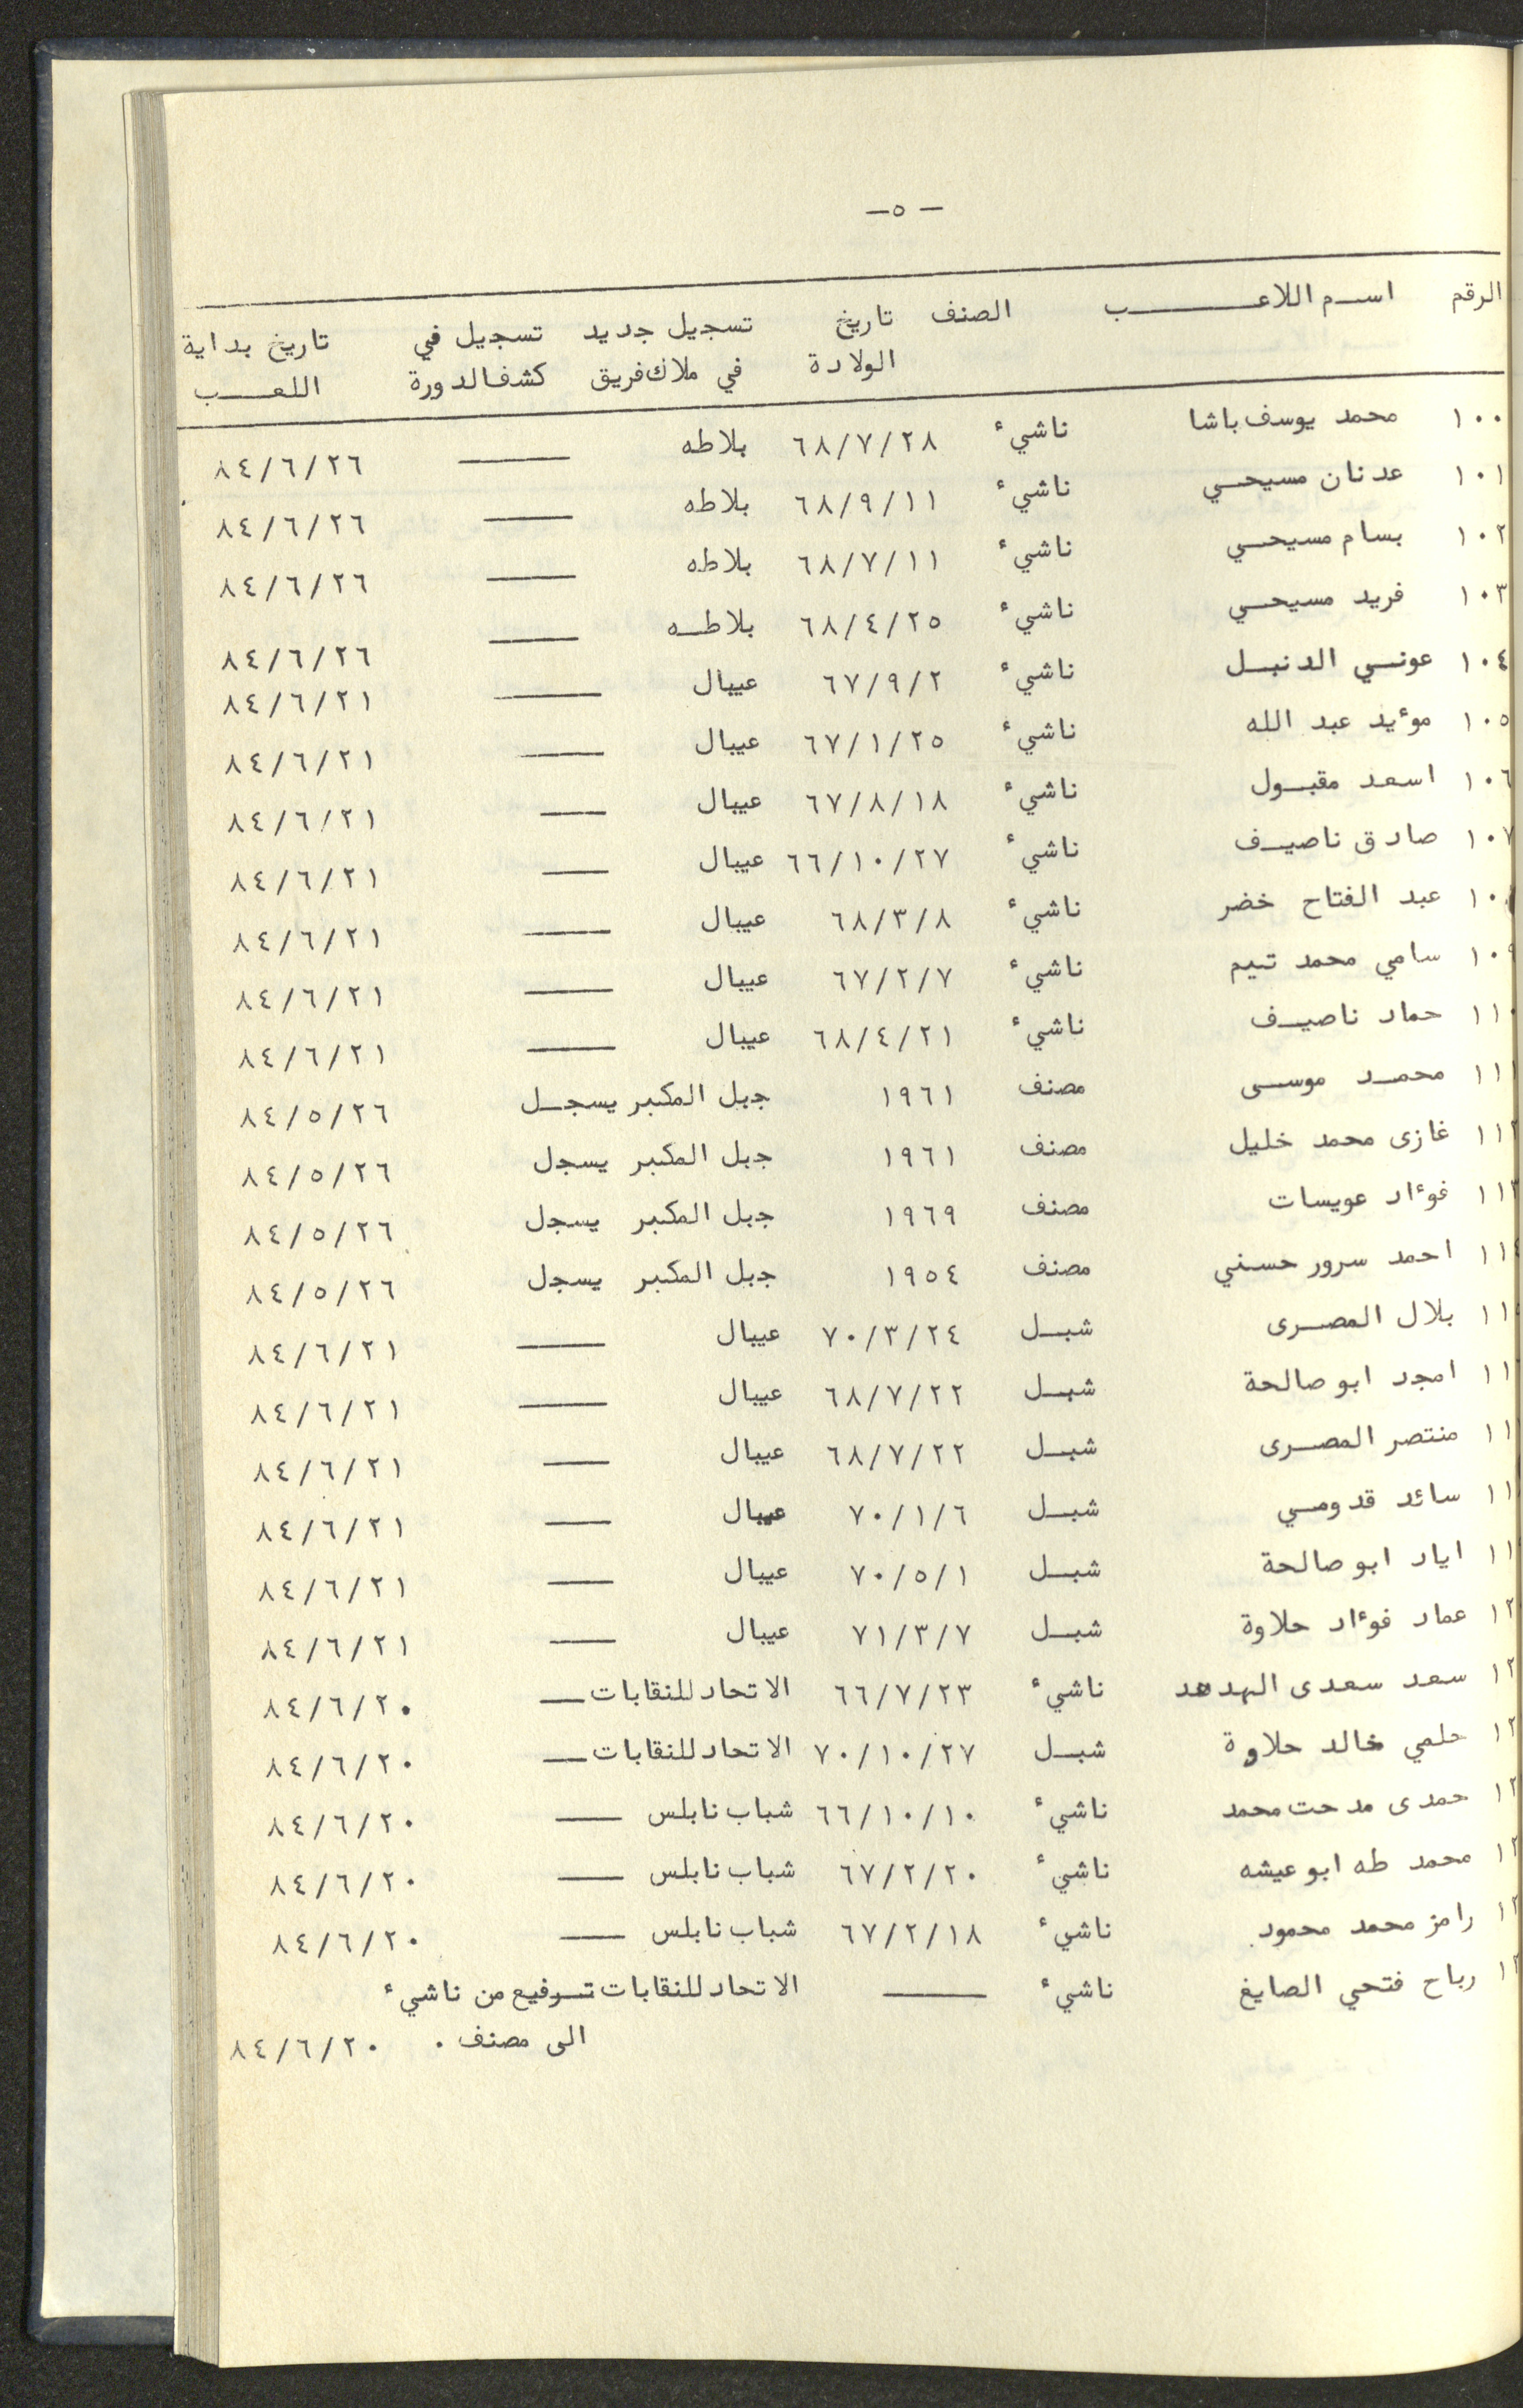 — ٥ —
الرقم اسم اللاعب الصنف تاريخ تسجيل جديد تسجيل في تاريخ بداية
الولادة في ملاك فريق كشف الدورة اللعب
١٠٠ محمد يوسف باشا ناشيء ٦٨/٧/٢٨ بلاطه —— ٨٤/٦/٢٦
١٠١ عدنان مسيحي ناشيء ٦٨/٩/١١ بلاطه —— ٨٤/٦/٢٦
١٠٢ بسام مسيحي ناشيء ٦٨/٧/١١ بلاطه —— ٨٤/٦/٢٦
١٠٣ فريد مسيحي ناشيء ٦٨/٤/٢٥ بلاطه —— ٨٤/٦/٢٦
١٠٤ عوني الدنبل ناشيء ٦٧/٩/٢ عيبال —— ٨٤/٦/٢١
١٠٥ موءيد عبد الله ناشيء ٦٧/١/٢٥ عيبال —— ٨٤/٦/٢١
١٠٦ اسعد مقبول ناشيء ٦٧/٨/١٨ عيبال —— ٨٤/٦/٢١
١٠٧ صادق ناصيف ناشيء ٦٦/١٠/٢٧ عيبال —— ٨٤/٦/٢١
١٠ عبد الفتاح خضر ناشيء ٦٨/٣/٨ عيبال —— ٨٤/٦/٢١
١٠٩ سامي محمد تيم ناشيء ٦٧/٢/٧ عيبال —— ٨٤/٦/٢١
١١٠ حماد ناصيف ناشيء ٦٨/٤/٢١ عيبال —— ٨٤/٦/٢١
١١١ محمد موسى مصنف ١٩٦١ جبل المكبر يسجل ٨٤/٥/٢٦
١١٢ غازى محمد خليل مصنف ١٩٦١ جبل المكبر يسجل ٨٤/٥/٢٦
١١٣ فوءاد عويسات مصنف ١٩٦٩ جبل المكبر يسجل ٨٤/٥/٢٦
١١٤ احمد سرور حسني مصنف ١٩٥٤ جبل المكبر يسجل ٨٤/٥/٢٦
١١ بلال المصرى شبل ٧٠/٣/٢٤ عيبال —— ٨٤/٦/٢١
١١ امجد ابو صالحة شبل ٦٨/٧/٢٢ عيبال —— ٨٤/٦/٢١
١١ منتصر المصرى شبل ٦٨/٧/٢٢ عيبال —— ٨٤/٦/٢١
١١ سائد قدومي شبل ٧٠/١/٦ عيبال —— ٨٤/٦/٢١
١١ اياد ابو صالحة شبل ٧٠/٥/١ عيبال —— ٨٤/٦/٢١
١٢ عماد فوءاد حلاوة شبل ٧١/٣/٧ عيبال —— ٨٤/٦/٢١
١٢ سعد سعدى الهدهد ناشيء ٦٦/٧/٢٣ الاتحاد للنقابات —— ٨٤/٦/٢٠
١٢ حلمي خالد حلاوة شبل ٧٠/١٠/٢٧ الاتحاد للنقابات —— ٨٤/٦/٢٠
١٢ حمدى مدحت محمد ناشيء ٦٦/١٠/١٠ شباب نابلس —— ٨٤/٦/٢٠
١٢ محمد طه ابو عيشه ناشيء ٦٧/٢/٢٠ شباب نابلس —— ٨٤/٦/٢٠
١٢ رامز محمد محمود ناشيء ٦٧/٢/١٨ شباب نابلس —— ٨٤/٦/٢٠
١٢ رباح فتحي الصايغ ناشيء —— الاتحاد للنقابات ترفيع من ناشيء
الى مصنف . ٨٤/٦/٢٠